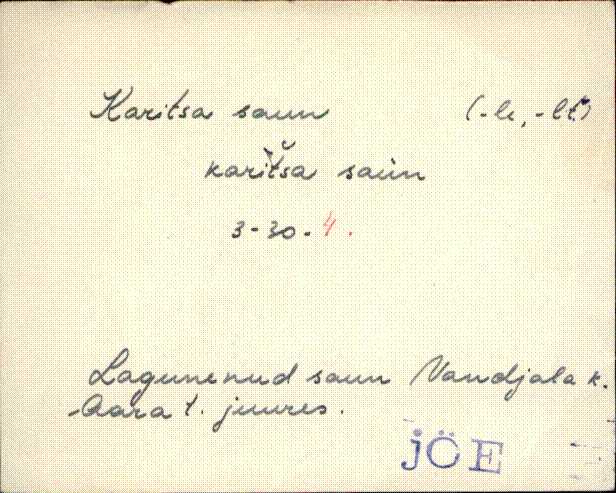 Karitsa saun (-le, -lt)
karitša saun
3-30.4.
Lagunenud saun Vandjala k.
Aara t. juures.
JÖE